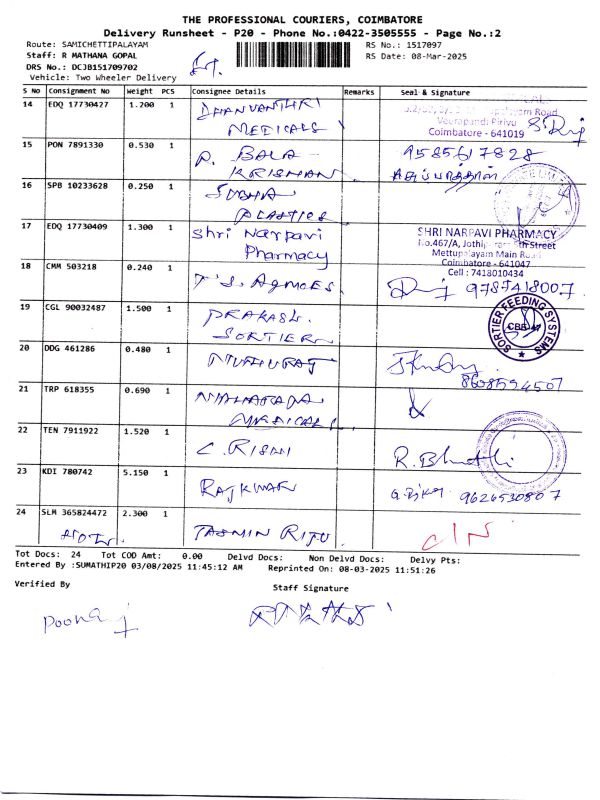 THE PROFESSIONAL COURIERS, COIMBATORE
Delivery Runsheet - P20 - Phone No.:0422-3505555 - Page No.:2
Route: SAMICHETTIPALAYAM RS No.: 1517097
Staff: R MATHANA GOPAL RS Date: 08-Mar-2025
DRS No.: DCJB151709702
Vehicle: Two Wheeler Delivery
S No Consignment No Weight PCS Consignee Details Remarks Seal & Signature
14 EDQ 17730427 1.200 1 DHANVANTHRI
MEDICALS
Veerapandi Pirivu
Coimbatore - 641019
15 PON 7891330 0.530 1 P. BALA - 9585617828
KRISHNAN
16 SPB 10233628 0.250 1 SUBHA
PLASTICS
17 EDQ 17730409 1.300 1 Shri Narpavi
Pharmacy
SHRI NARPAVI PHARMACY
No.467/A, Jothipuram Street
Mettupalayam Main Road
Coimbatore - 641047
Cell : 7418010434
18 CMM 503218 0.240 1 9787418007
19 CGL 90032487 1.500 1 PRAKASH.
SORTIER
SORTIER FEEDING SYSTEMS
CBE-47
20 DDG 461286 0.480 1 MUTHURAJ
8608594507
21 TRP 618355 0.690 1
MEDICALS
22 TEN 7911922 1.520 1 C. RISHI R. Bharathi
23 KDI 780742 5.150 1 RAJKUMAR 9626530807
24 SLM 365824472 2.300 1 TASMIN RIJU C/N
Tot Docs: 24 Tot COD Amt: 0.00 Delvd Docs: Non Delvd Docs: Delvy Pts:
Entered By :SUMATHIP20 03/08/2025 11:45:12 AM Reprinted On: 08-03-2025 11:51:26
Verified By Staff Signature